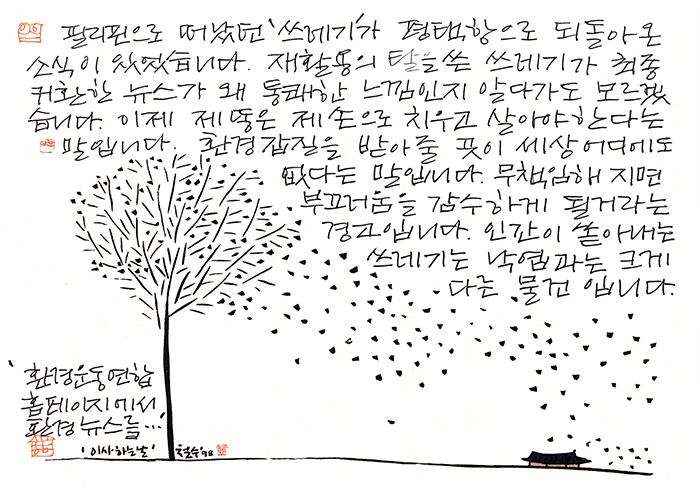 필리핀으로 떠났던 '쓰레기'가 평택항으로 되돌아온
소식이 있었습니다. 재활용의 탈을쓴 쓰레기가 최종
귀환한 뉴스가 왜 통쾌한 느낌인지 알다가도 모르겠
습니다. 이제 제 똥은 제 손으로 치우고 살아야한다는
말입니다. 환경잡질을 받아줄 곳이 세상어디에도
없다는 말입니다. 무책임해 지면
부끄러움을 감수하게 될거라는
경고입니다. 인간이 쏟아내는
쓰레기는 낙엽과는 크게
다른 물건 입니다.
'환경운동연합
홈페이지에서
환경뉴스를…'
'이사하는날' 철수 '98